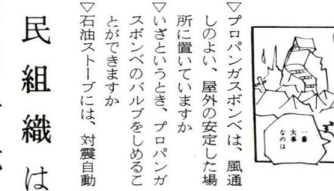 一番
大事
なのは
▽プロパンガスボンベは、風通
しのよい、屋外の安定した場
所に置いていますか
▽いざというとき、プロパンガ
スボンベのバルブをしめるこ
とができますか
▽石油ストーブには、対震自動
民組織は